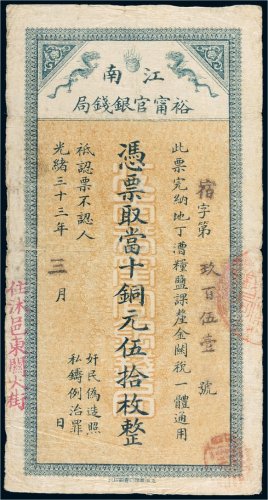 江南
裕甯官銀錢局
宿字第玖百伍壹號
此票完納地丁漕糧鹽課釐金關稅一體通用
憑票取當十銅元伍拾枚整
祗認票不認人
光緒三十三年三月日
奸民偽造照
私鑄例治罪
住沭邑東關大街